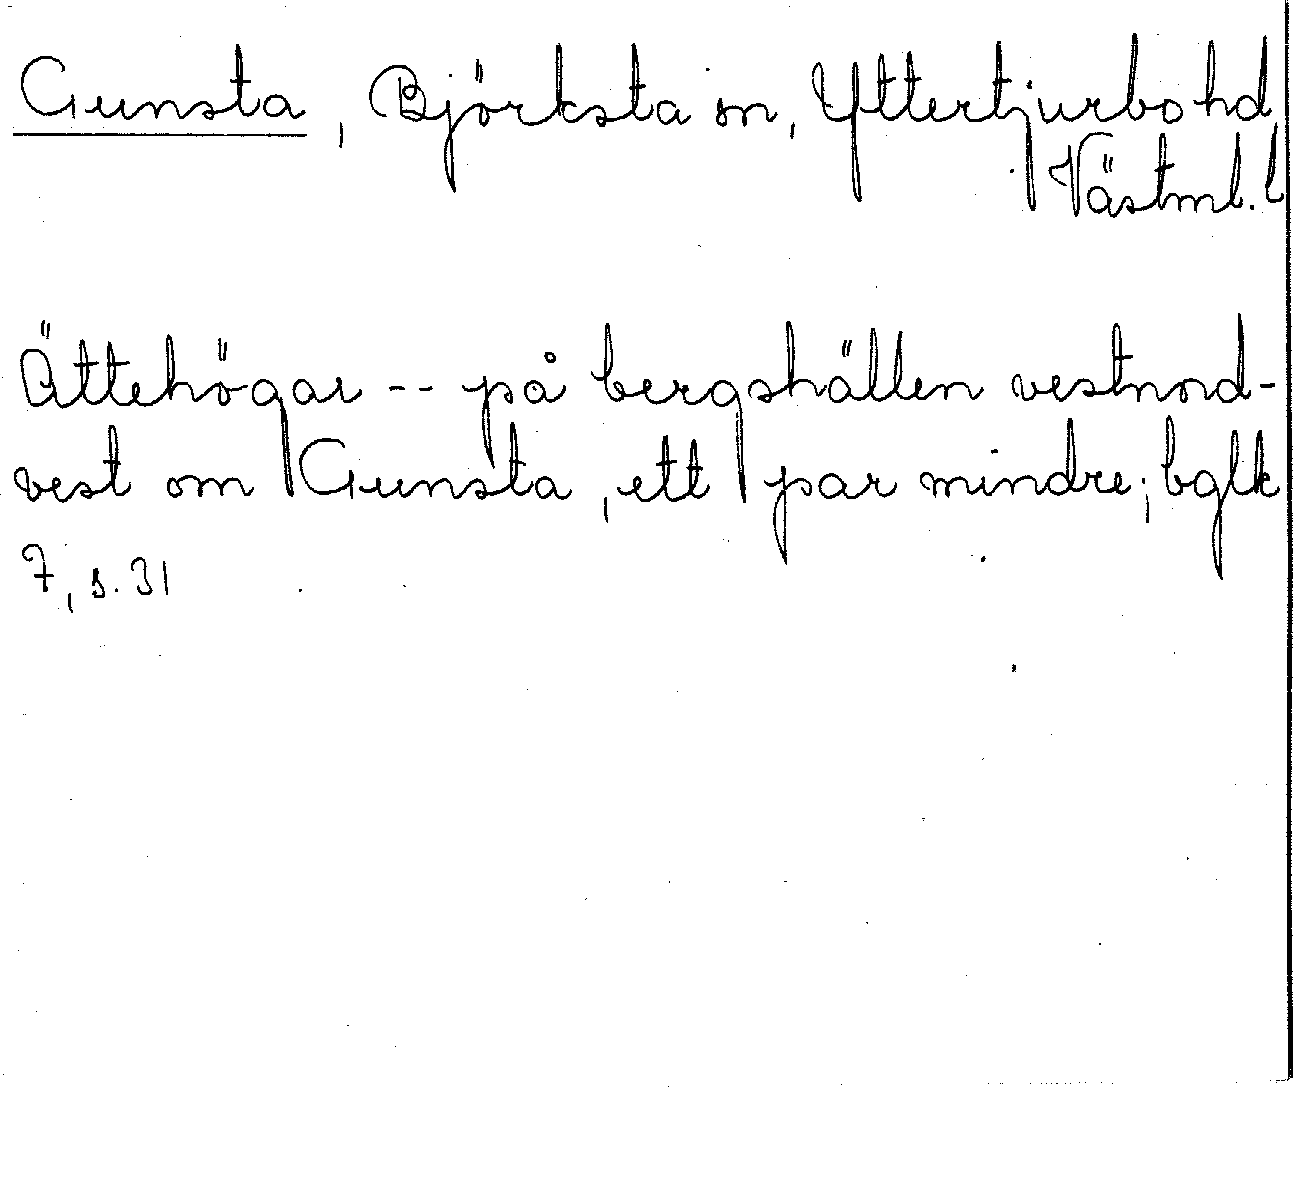 Gunsta, Björksta sn, Yttertjurbo hd,
Västml. l
Ättehögar -- på bergshällen vestnord-
vest om Gunsta, ett par mindre; bglk
7, s. 31